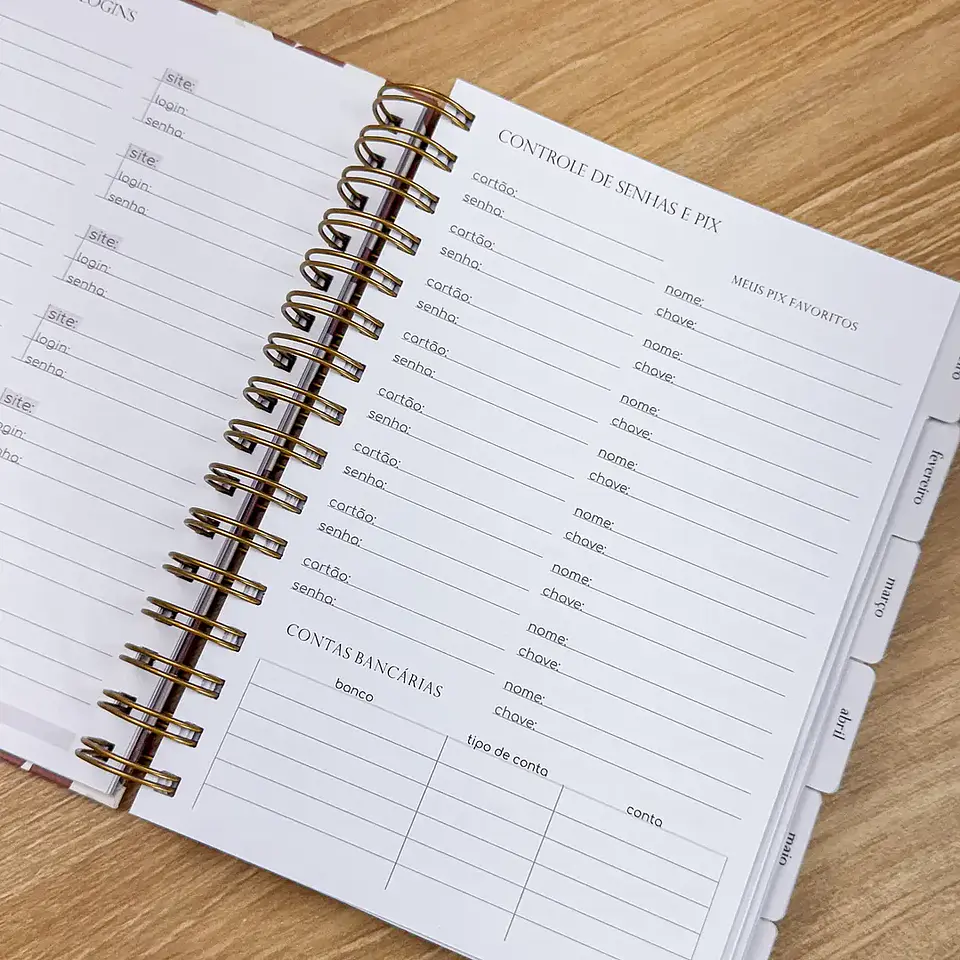 LOGINS
site:
login:
senha:
site:
login:
senha:
site:
login:
senha:
site:
login:
senha:
site:
ogin:
nha:
CONTROLE DE SENHAS E PIX
cartão:
senha:
cartão:
senha:
cartão:
senha:
cartão:
senha:
cartão:
senha:
cartão:
senha:
cartão:
senha:
cartão:
senha:
MEUS PIX FAVORITOS
nome:
chave:
nome:
chave:
nome:
chave:
nome:
chave:
nome:
chave:
nome:
chave:
nome:
chave:
nome:
chave:
CONTAS BANCÁRIAS
banco
tipo de conta
conta
fevereiro
março
abril
maio